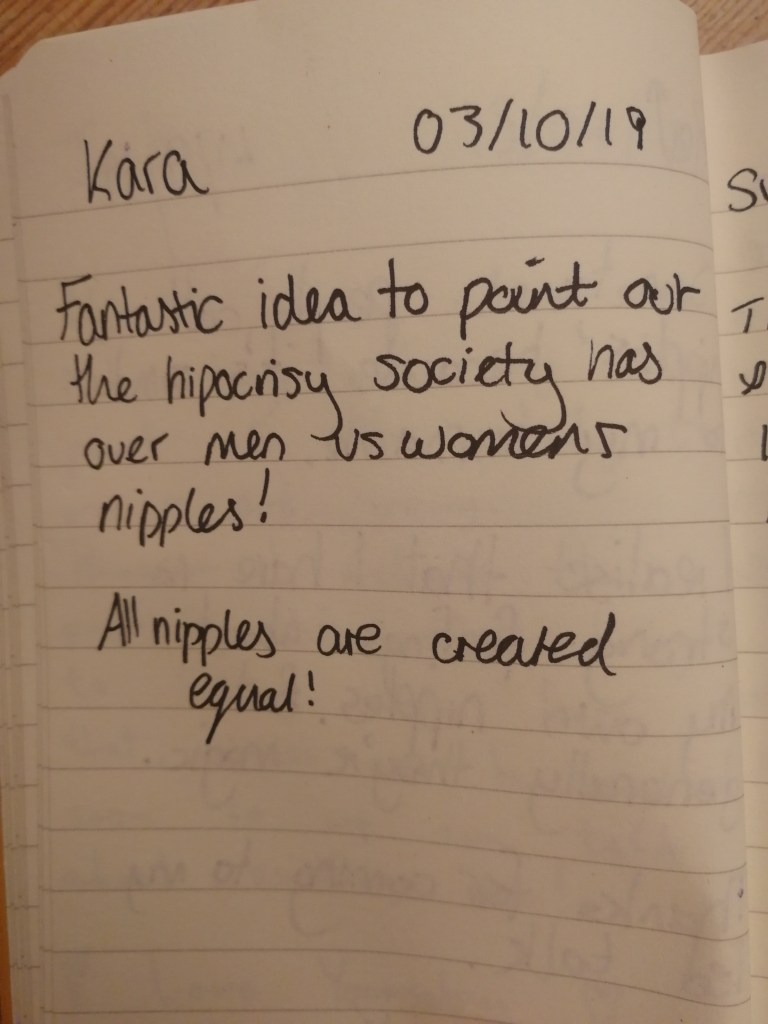 Kara
03/10/19
Fantastic idea to point out
the hipocrisy society has
over men vs womens
nipples!
All nipples are created
equal!